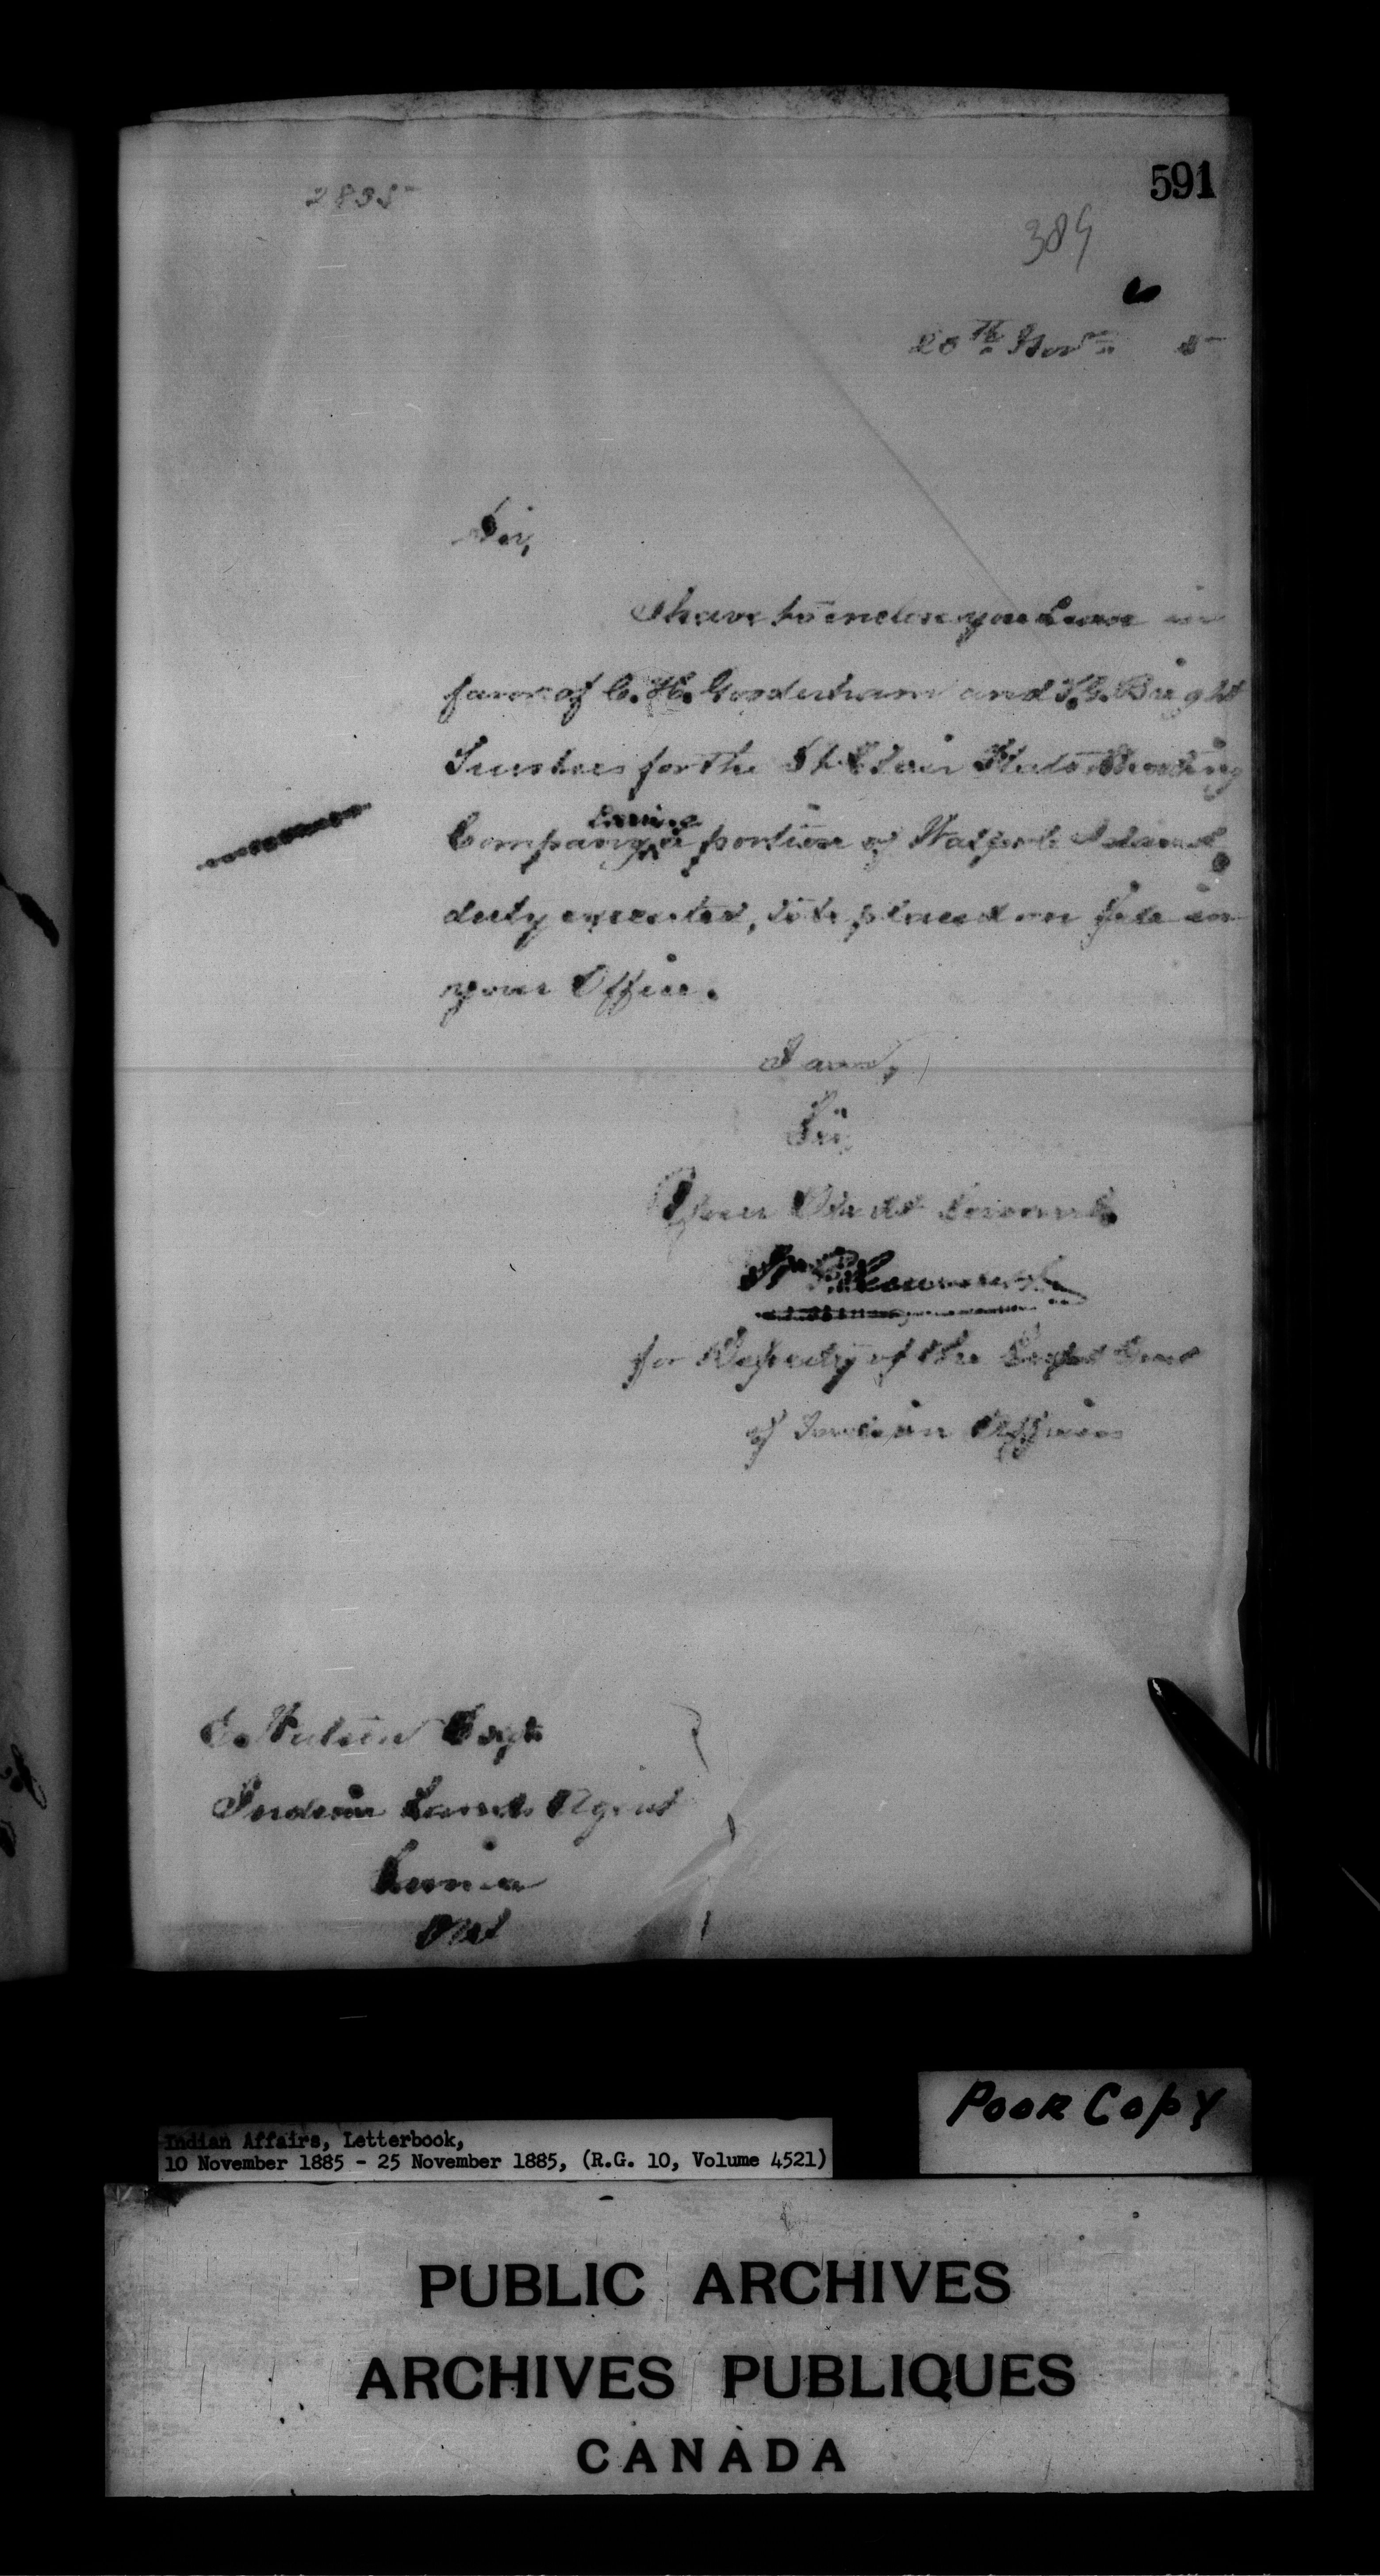 591
2895
389
20th Novr 5
Sir,
I have to enclose you Lease in
favor of C. H. Gooderham and T.G. Bright
Trustees for the St Clair Flats Shooting
Company, a portion of Walpole Island
duly executed, to be placed on file in
your Office.
I am,
Sir,
Your Obedt Servant
for Deputy of the Supt Genl
of Indian Affairs
E. Watson Esqre
Indian Lands Agent
Sarnia
Ont
Poor Copy
Indian Affairs, Letterbook,
10 November 1885 - 25 November 1885, (R.G. 10, Volume 4521)
PUBLIC ARCHIVES
ARCHIVES PUBLIQUES
CANADA